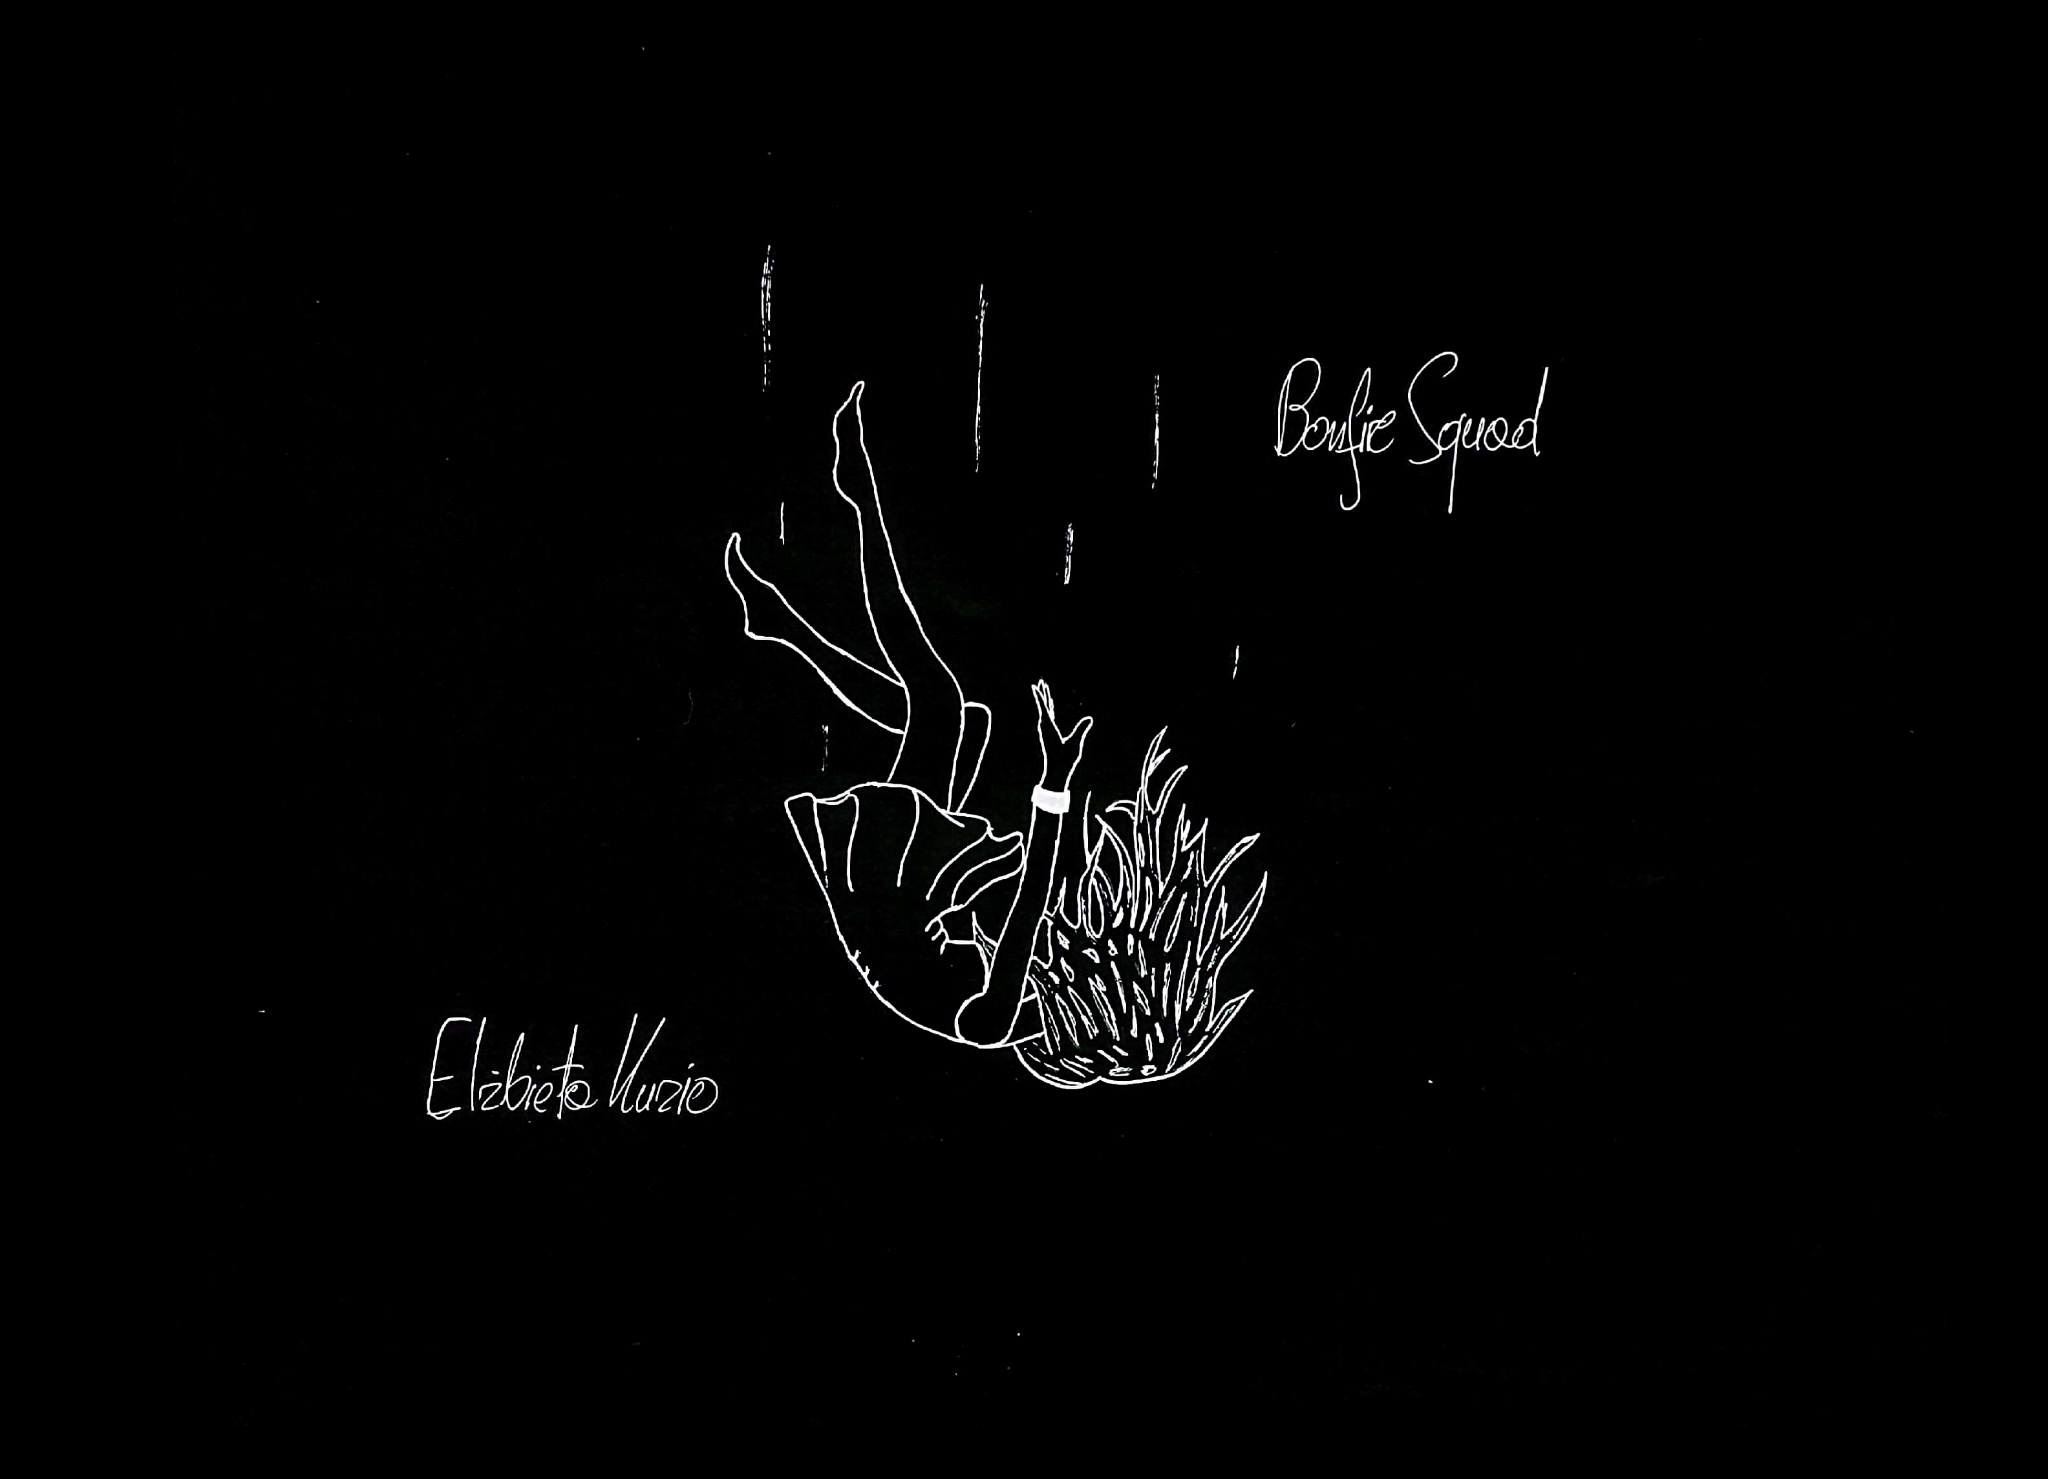 Bonfie Squad
Elżbieta Kuzio